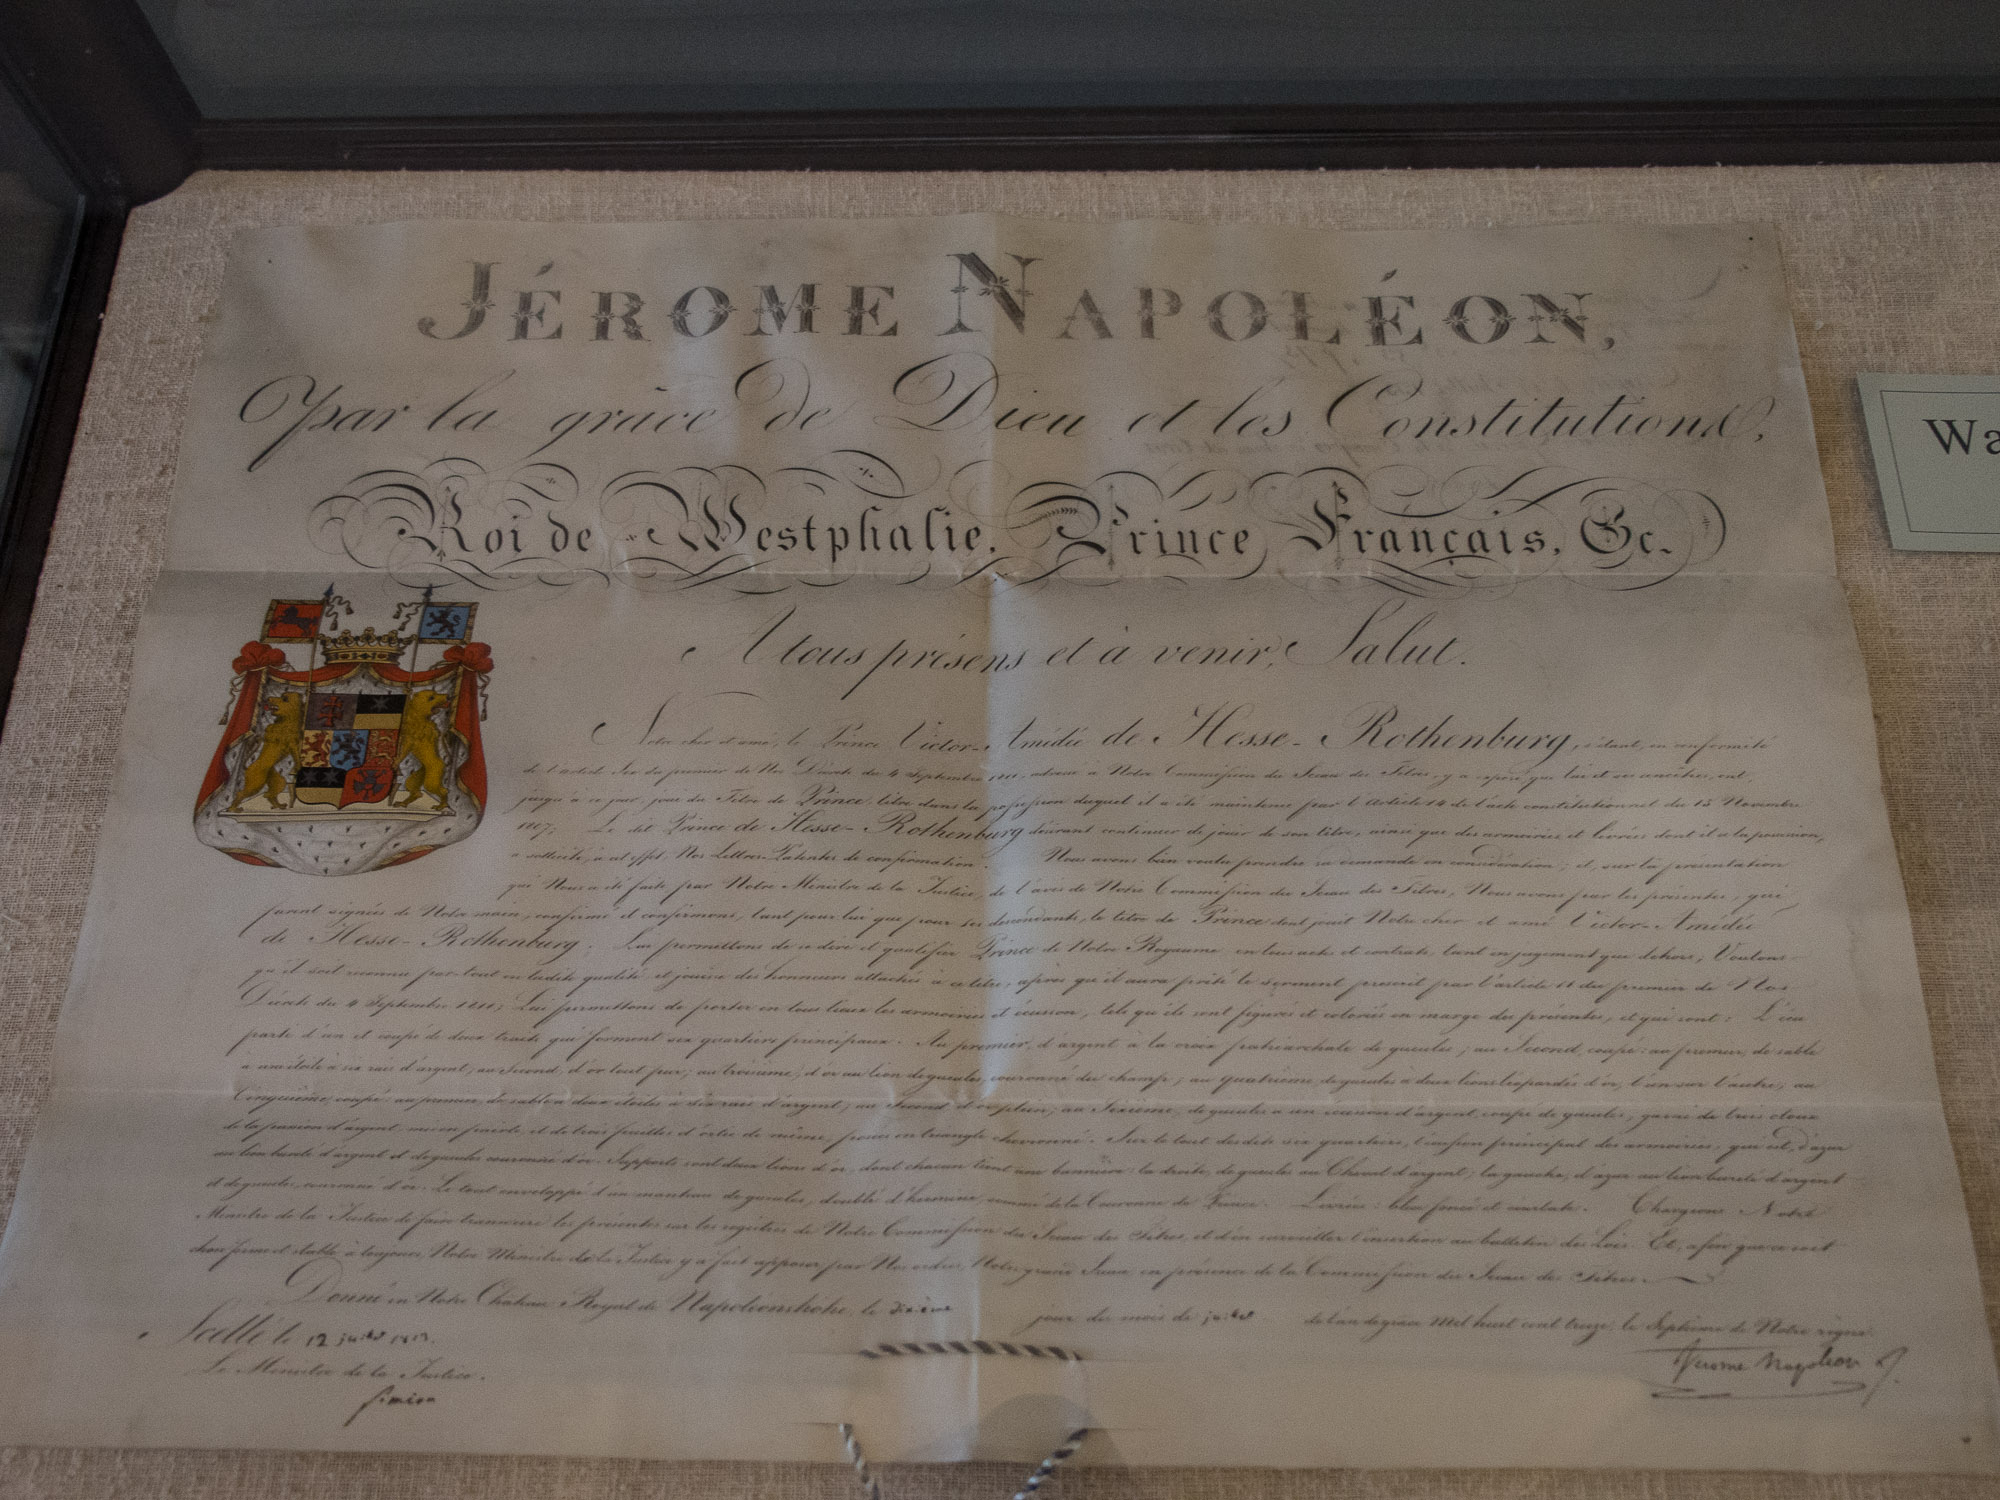 JÉRÔME NAPOLÉON,
Par la grâce de Dieu et les Constitutions,
Roi de Westphalie, Prince Français, &c.
A tous présens et à venir, Salut.
Wa
Notre cher et amé, le Prince Victor-Amédée de Hesse-Rothenburg, s'étant, en conformité
de l'article du premier de Nos Décrets du 4 Septembre 1811, adressé à Notre Commission du Sceau des Titres, y a exposé que lui et ses ancêtres, ont,
jusqu'à ce jour, joui du Titre de Prince, titre dans la possession duquel il a été maintenu par l'Article 14 de l'acte constitutionnel du 15 Novembre
1807; Le dit Prince de Hesse-Rothenburg désirant continuer de jouir de son titre, ainsi que des armoiries et livrées dont il a la possession,
a sollicité, à cet effet, Nos Lettres-Patentes de confirmation. Nous avons bien voulu prendre sa demande en considération; et, sur la présentation
qui Nous a été faite par Notre Ministre de la Justice, de l'avis de Notre Commission du Sceau des Titres, Nous avons par les présentes, qui
seront signées de Notre main, confirmé et confirmons, tant pour lui que pour ses descendants, le titre de Prince dont jouit Notre cher et amé Victor-Amédée
de Hesse-Rothenburg. Lui permettons de se dire et qualifier Prince de Notre Royaume, en tous actes et contrats, tant en jugement que dehors; Voulons
qu'il soit reconnu par-tout en ladite qualité et jouisse des honneurs attachés à ce titre, après qu'il aura prêté le serment prescrit par l'article 11 du premier de Nos
Décrets du 4 Septembre 1811; Lui permettons de porter en tous lieux les armoiries et écusson, tels qu'ils sont figurés et coloriés en marge des présentes, et qui sont: L'écu
parti d'un et coupé de deux traits qui forment six quartiers principaux. Au premier, d'argent à la croix patriarchale de gueules; au Second, coupé: au premier, de sable
à une étoile à six rais d'argent; au second, d'or tout pur; au troisième, d'or au lion de gueules, couronné du champ; au quatrième, de gueules à deux lions léopardés d'or, l'un sur l'autre; au
Cinquième, coupé: au premier, de sable à deux étoiles à six rais d'argent; au Second d'or plein; au Sixième, de gueules à un écusson d'argent, coupé de gueules, garni de trois cloux
de la passion d'argent, mis en pairle, et de trois feuilles d'ortie de même, posées en triangle chevronné. Sur le tout des dits six quartiers, l'écusson principal des armoiries, qui est, d'azur
au lion burelé d'argent et de gueules couronné d'or. Supports sont deux lions d'or, dont chacun tient une bannière: la droite, de gueules au Cheval d'argent; la gauche, d'azur au lion burelé d'argent
et de gueules, couronné d'or. Le tout enveloppé d'un manteau de gueules, doublé d'hermine, sommé de la Couronne de Prince. Livrées: bleu foncé et écarlate. Chargeons Notre
Ministre de la Justice de faire transcrire les présentes sur les registres de Notre Commission du Sceau des Titres, et d'en surveiller l'insertion au bulletin des Lois. Et, afin que ce soit
chose ferme et stable à toujours, Notre Ministre de la Justice y a fait apposer par Nos ordres, Notre grand Sceau, en présence de la Commission du Sceau des Titres.
Donné en Notre Château Royal de Napoléonshöhe, le dixième jour du mois de juillet de l'an de grace Mil huit cent treize, le Septième de Notre règne.
Scellé le 12 juillet 1813.
Le Ministre de la Justice.
Siméon
Jerome Napoleon